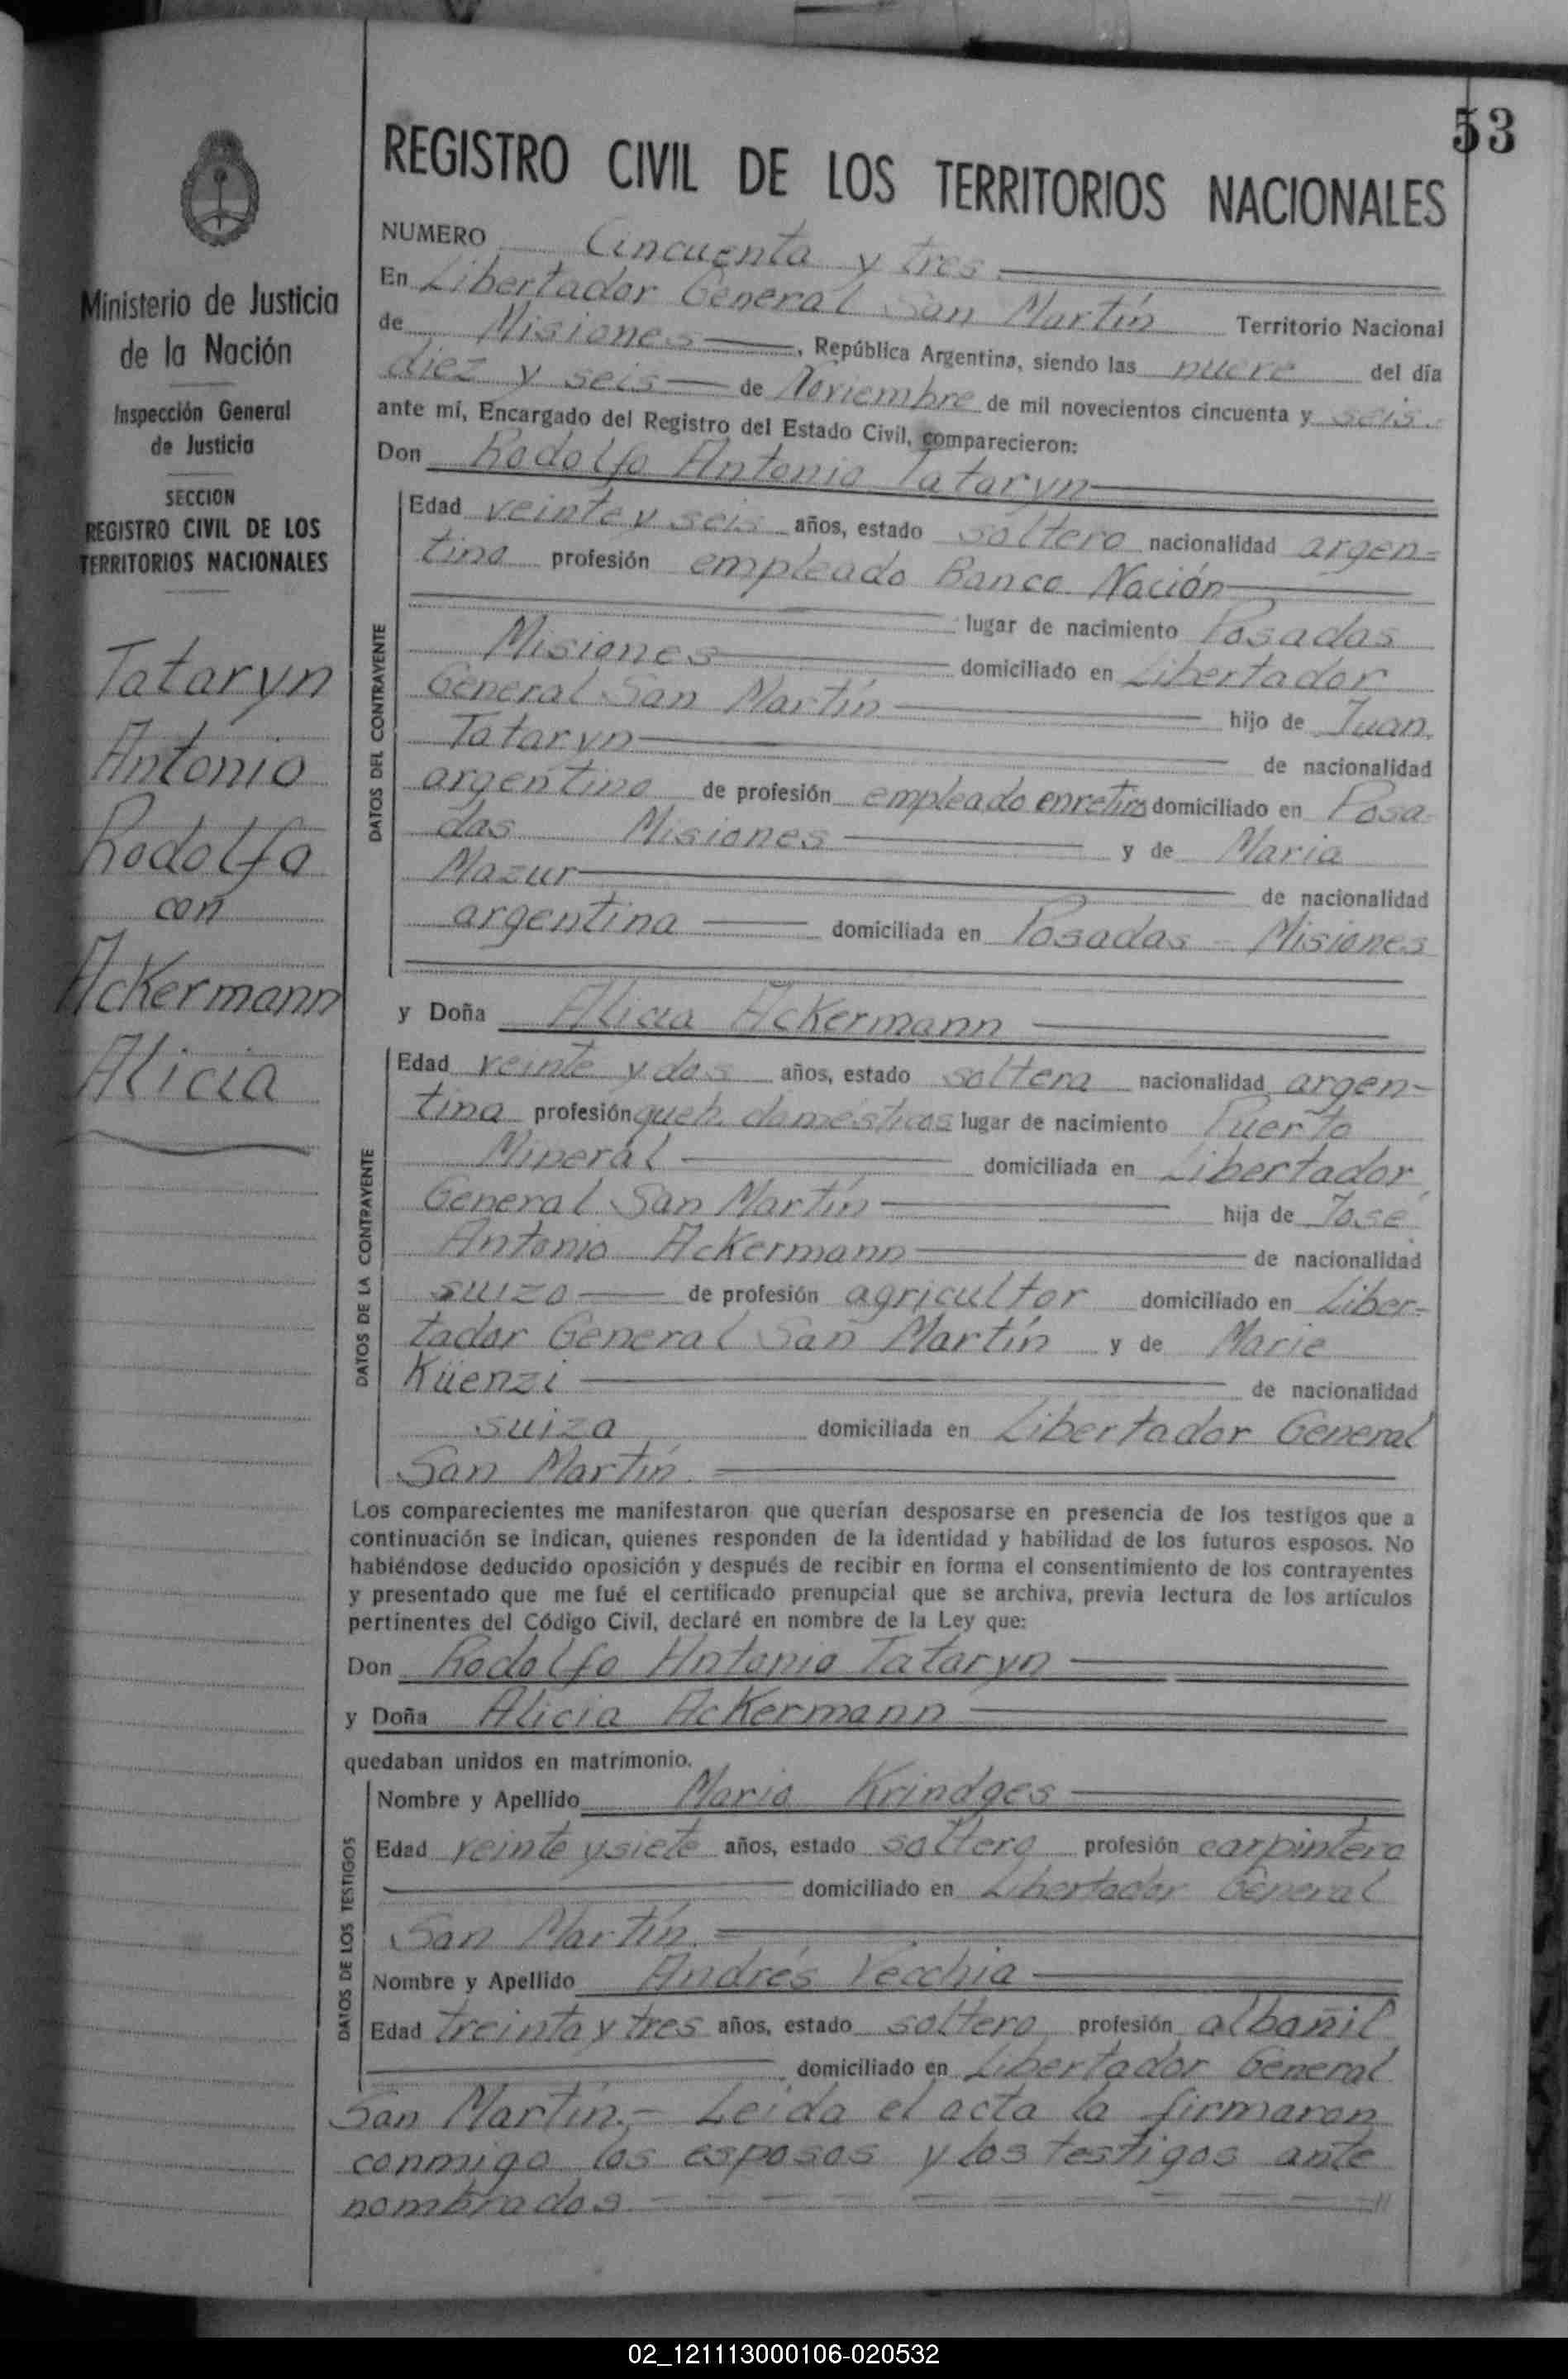 53
REGISTRO CIVIL DE LOS TERRITORIOS NACIONALES
NUMERO Cincuenta y tres.
En Libertador General San Martín Territorio Nacional
de Misiones, República Argentina, siendo las nueve del día
diez y seis de Noviembre de mil novecientos cincuenta y seis.
ante mí, Encargado del Registro del Estado Civil, comparecieron:
Don Rodolfo Antonio Tataryn
Edad veinte y seis años, estado soltero nacionalidad argen=
tina profesión empleado Banco Nación
lugar de nacimiento Posadas
Misiones domiciliado en Libertador
General San Martín hijo de Juan
Tataryn de nacionalidad
argentino de profesión empleado en retiro domiciliado en Posa
das Misiones y de Maria
Mazur de nacionalidad
argentina domiciliada en Posadas - Misiones
DATOS DEL CONTRAYENTE
y Doña Alicia Ackermann
Edad veinte y dos años, estado soltera nacionalidad argen-
tina profesión queh. domésticos lugar de nacimiento Puerto
Mineral domiciliada en Libertador
General San Martín hija de José
Antonio Ackermann de nacionalidad
suizo de profesión agricultor domiciliado en Liber=
tador General San Martín y de Marie
Küenzi de nacionalidad
suiza domiciliada en Libertador General
San Martín.
DATOS DE LA CONTRAYENTE
Los comparecientes me manifestaron que querían desposarse en presencia de los testigos que a
continuación se indican, quienes responden de la identidad y habilidad de los futuros esposos. No
habiéndose deducido oposición y después de recibir en forma el consentimiento de los contrayentes
y presentado que me fué el certificado prenupcial que se archiva, previa lectura de los artículos
pertinentes del Código Civil, declaré en nombre de la Ley que:
Don Rodolfo Antonio Tataryn
y Doña Alicia Ackermann
quedaban unidos en matrimonio.
Nombre y Apellido Mario Krindges
Edad veinte y siete años, estado soltero profesión carpintero
domiciliado en Libertador General
San Martín.
Nombre y Apellido Andrés Vecchia
Edad treinta y tres años, estado soltero profesión albañil
domiciliado en Libertador General
DATOS DE LOS TESTIGOS
San Martín.- Leída el acta la firmaron
conmigo los esposos y los testigos ante
nombrados
Ministerio de Justicia
de la Nación
Inspección General
de Justicia
SECCION
REGISTRO CIVIL DE LOS
TERRITORIOS NACIONALES
Tataryn
Antonio
Rodolfo
con
Ackermann
Alicia
02_121113000106-020532